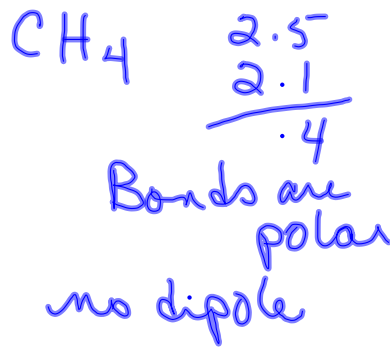 CH4
2.5
2.1
.4
Bonds are
polar
no dipole